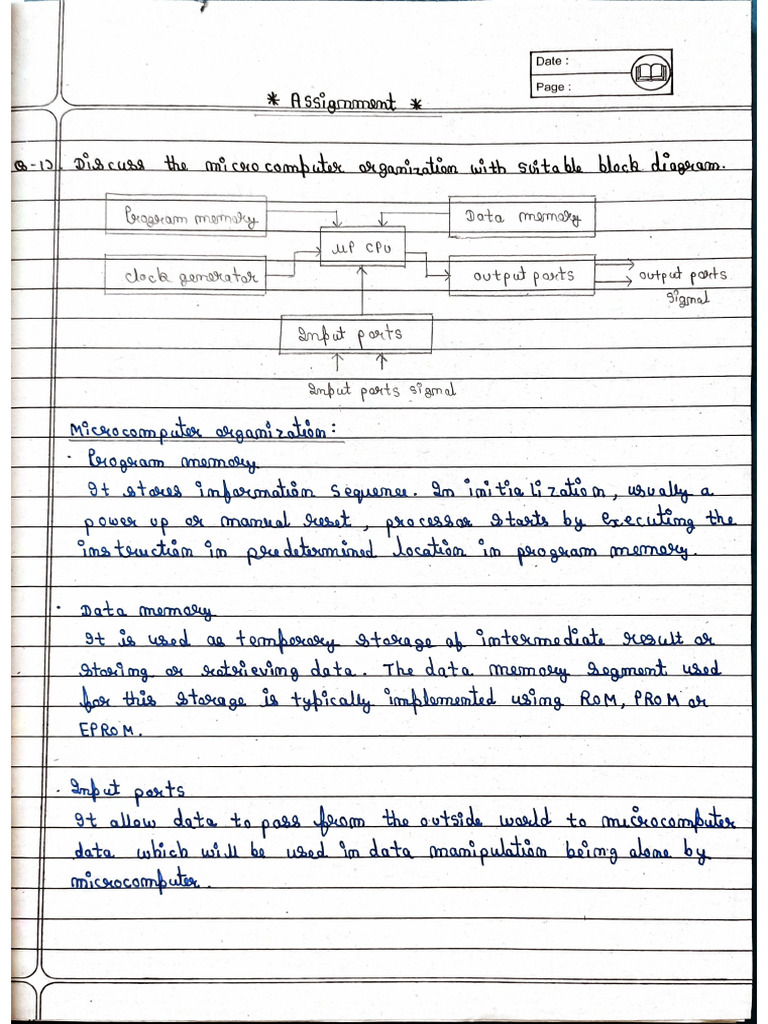 Date :
Page :
* Assignment *
Q-1). Discuss the microcomputer organization with suitable block diagram.
Program memory
Data memory
MP CPU
Clock generator
output ports
output ports
signal
Input ports
Input ports signal
Microcomputer organization:
· Program memory
It stores information sequence. In initialization, usually a
power up or manual reset, processor starts by executing the
instruction in predetermined location in program memory.
· Data memory
It is used as temporary storage of intermediate result or
storing or retrieving data. The data memory segment used
for this storage is typically implemented using ROM, PROM or
EPROM.
· Input ports
It allow data to pass from the outside world to microcomputer
data which will be used in data manipulation being alone by
microcomputer.